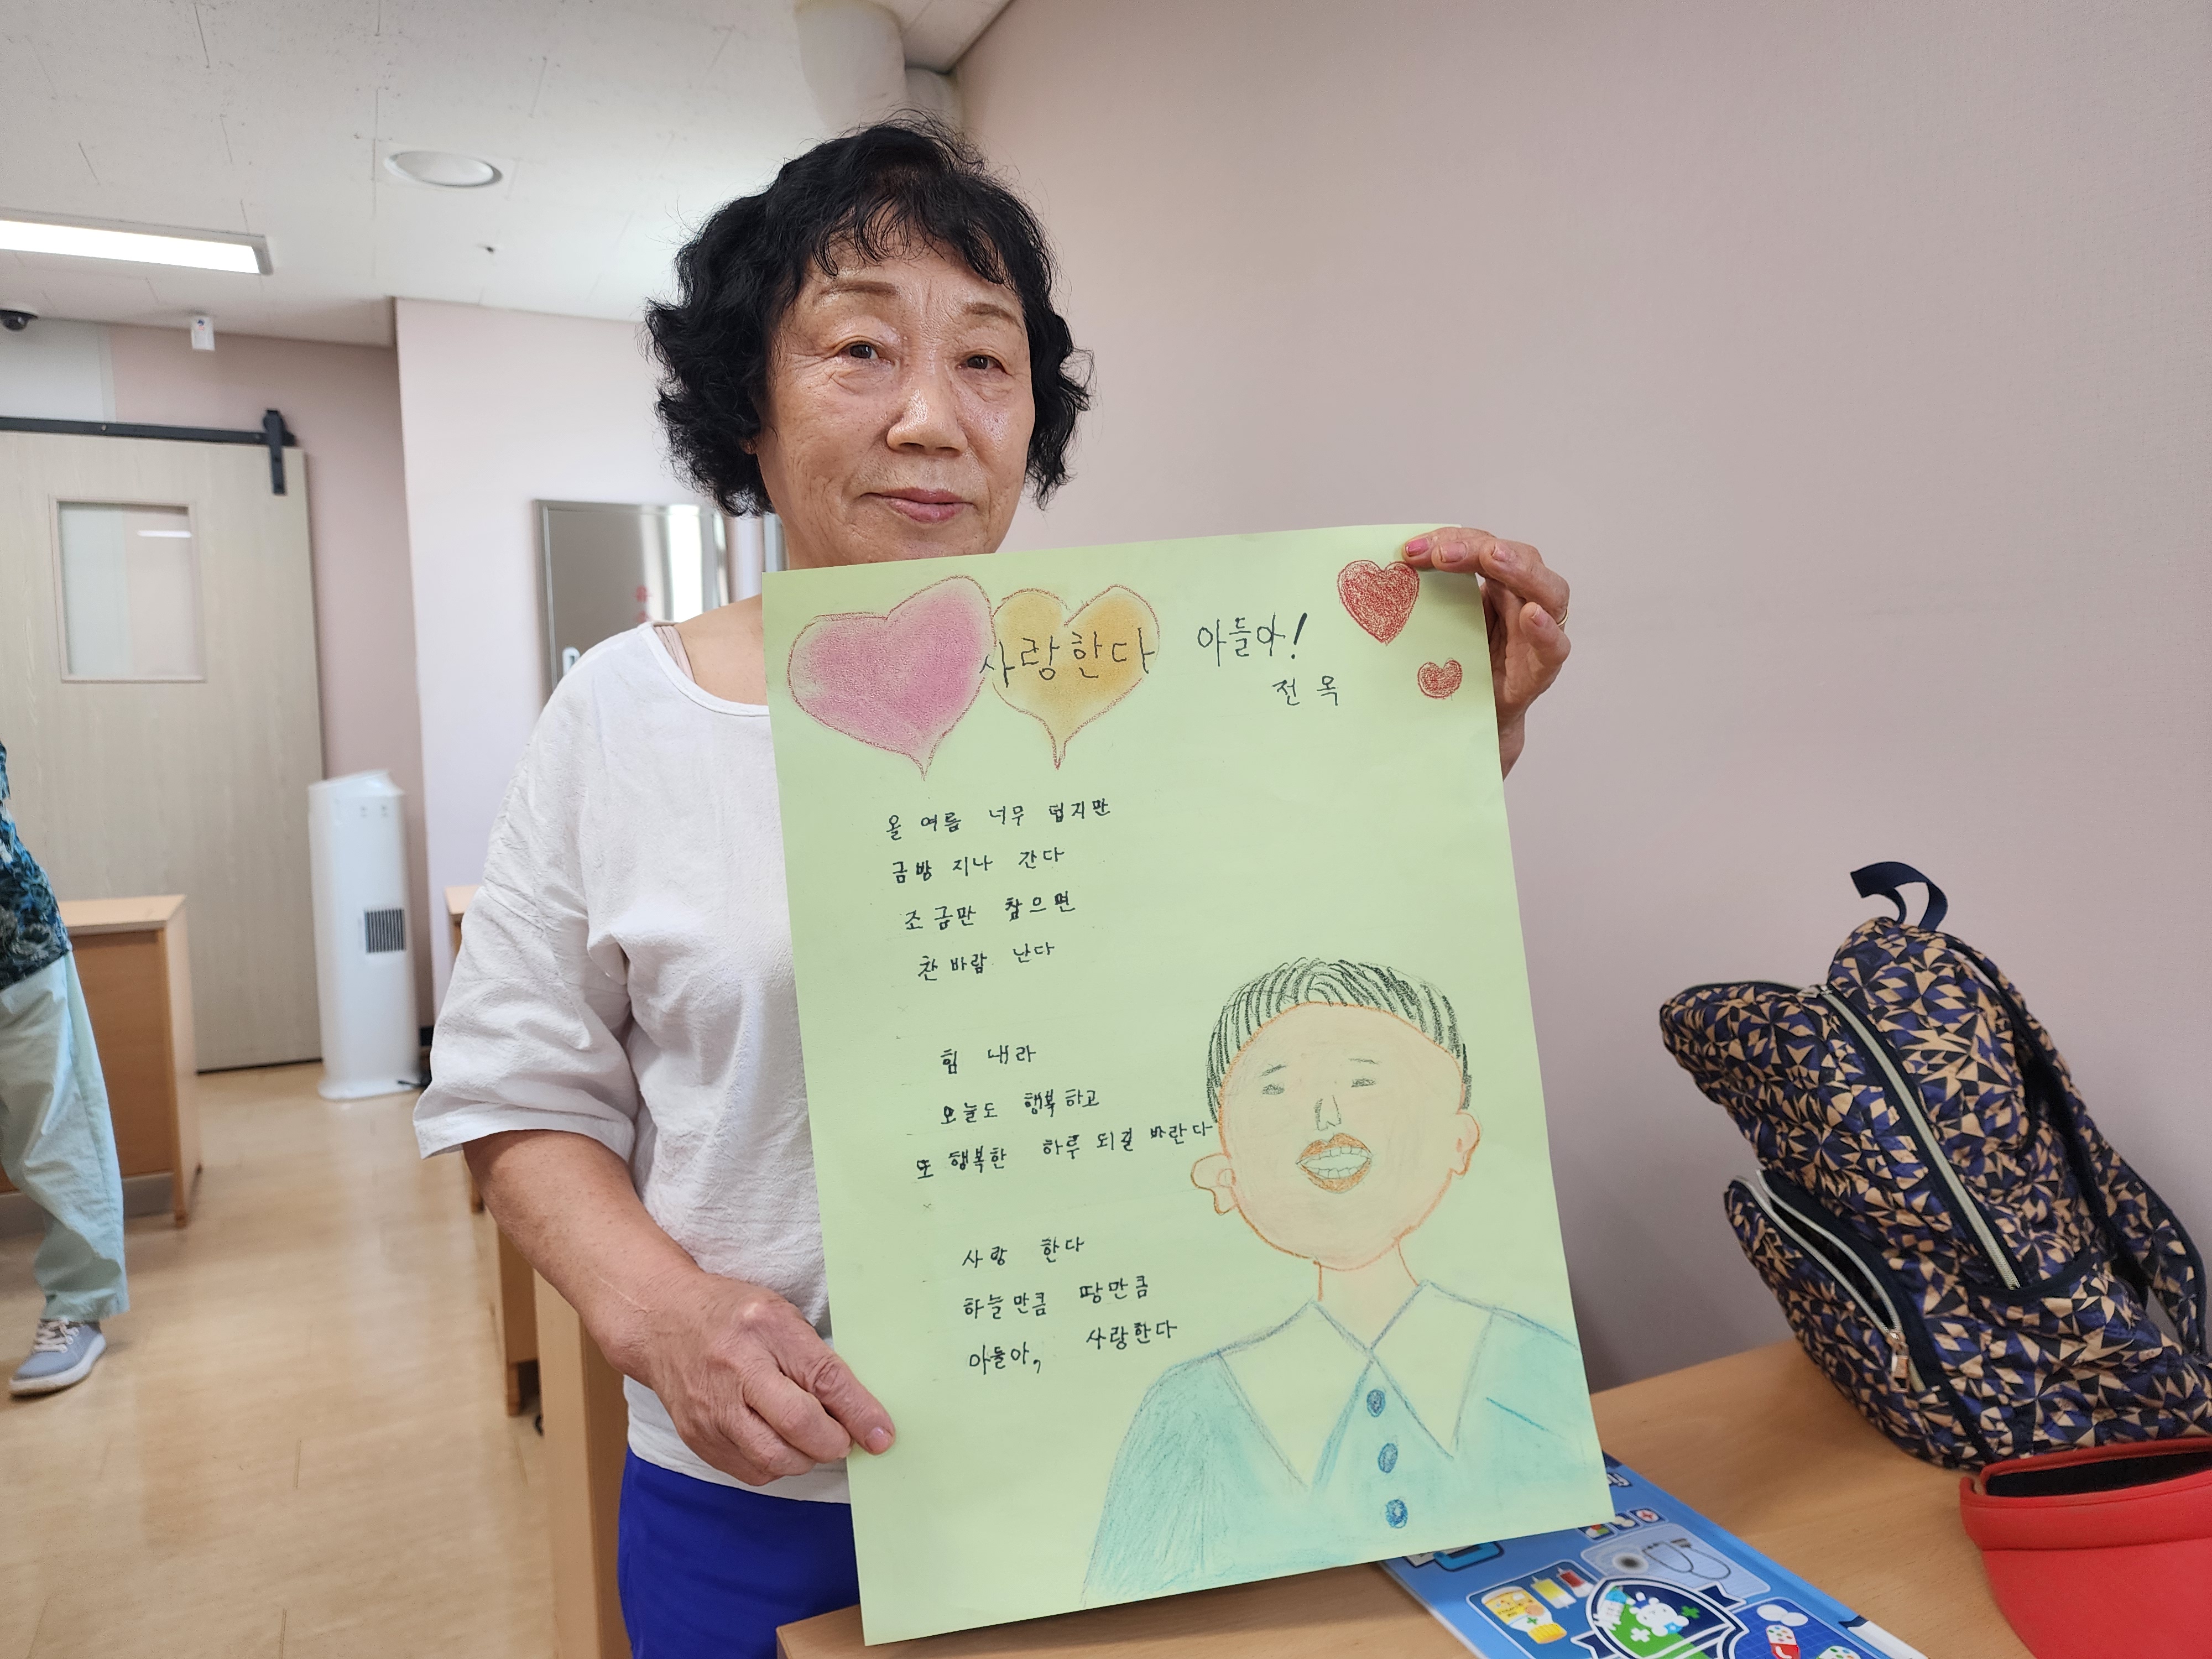 사랑한다 아들아!
전옥
올 여름 너무 덥지만
금방 지나 간다
조금만 참으면
찬바람 난다
힘 내라
오늘도 행복하고
또 행복한 하루 되길 바란다
사랑 한다
하늘만큼 땅만큼
아들아, 사랑한다